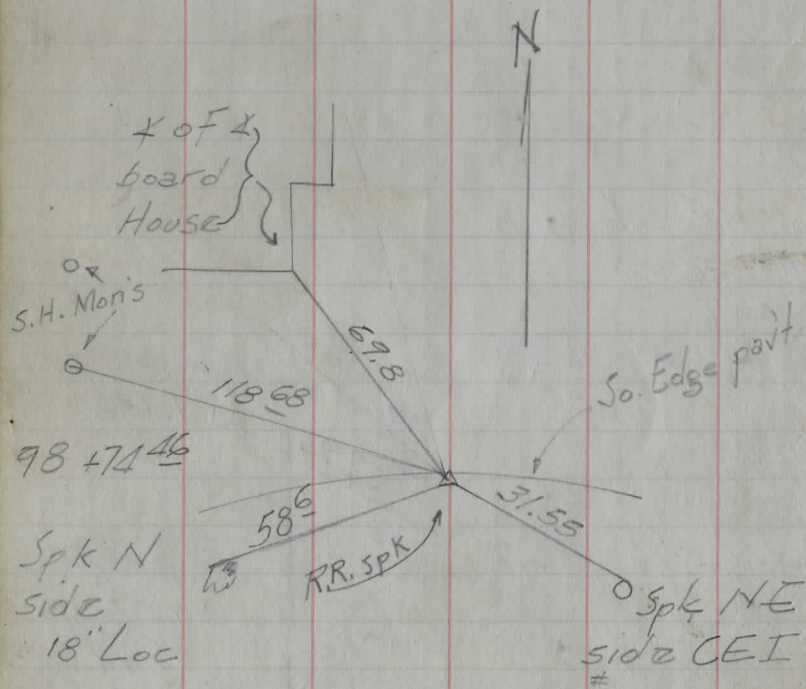 N
⦤ of ⦤
board
House
S.H. Mon's
69.8
118 68
So. Edge pav't.
98 +74 46
58 6
31.55
R.R. Spk
Spk N
side
18" Loc
Spk NE
side CEI
#